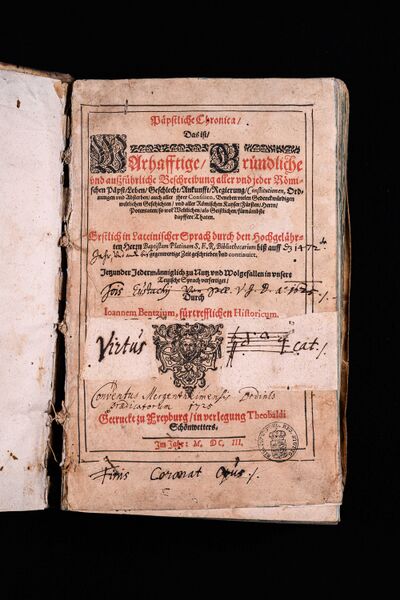 Päpstliche Chronica/
Das ist/
Warhafftige/ Gründliche
vnd außführliche Beschreibung aller vnd jeder Römi-
schen Päpst/ Leben/ Geschlecht/ Ankunfft/ Regierung/ Constitutionen, Ord-
nungen vnd Absterben/ auch aller jhrer Concilien. Beneben vielen Gedenckwürdigen
weltlichen Geschichten/ vnd aller Römischen Kayser/
Potentaten/ so wol Weltlichen/ als Geistlichen/ fürnämbste
dapffere Thaten.
Erstlich in Lateinischer Sprach durch den Hochgelähr-
ten Herrn Baptistam Platinam S. E. R. Bibliothecarium biß auff 1472
Jahr vnd biß gegenwertige Zeit geschrieben/ vnd continuirt.
Jetzunder Jedermänniglich zu Nutz vnd Wolgefallen in vnsere
Teutsche Sprach verfertiget/
Durch
Ioannem Bentzium, fürtrefflichen Historicum.
Virtus cat.
Conventus Mergentheimensis Ordinis
Praedicatorum 1725
Getruckt zu Freyburg/ in verlegung Theobaldi
Schönwetters,
Im Jahr: M. DC III.
Finis Coronat Opus